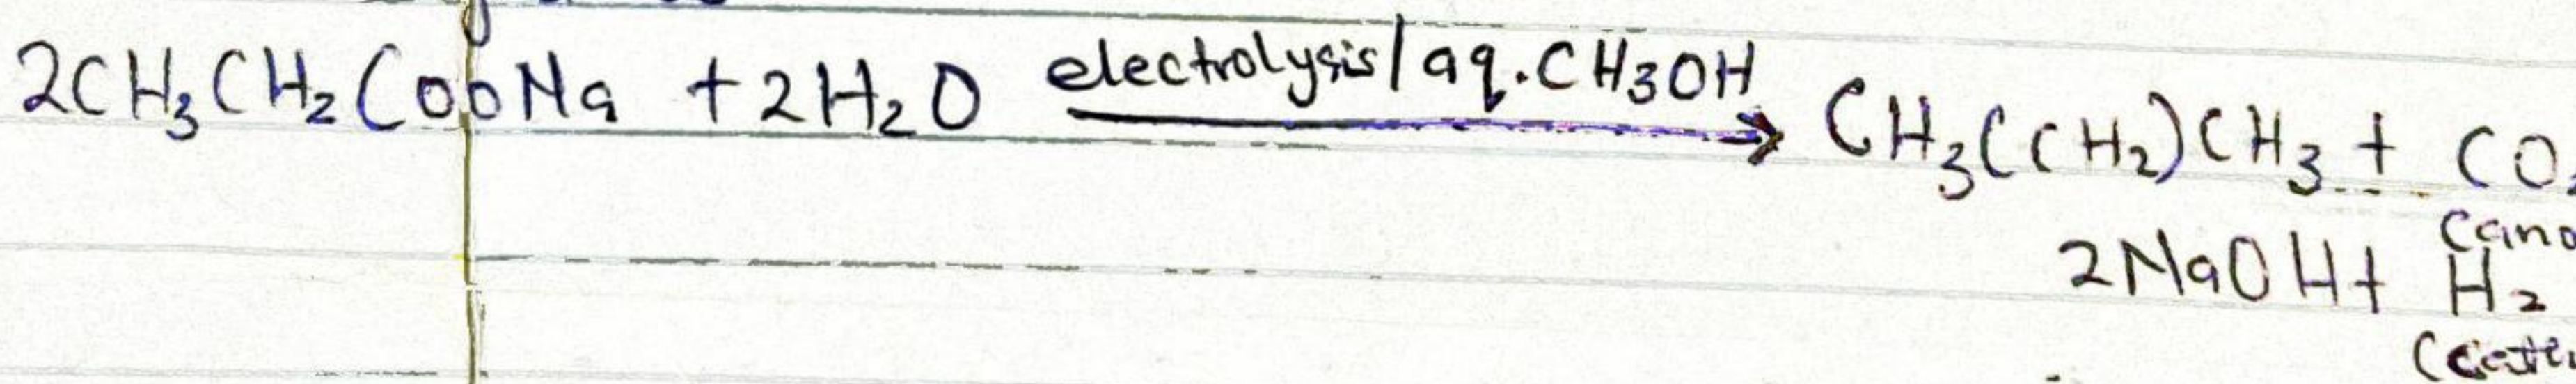 2CH₃CH₂COONa + 2H₂O electrolysis/aq.CH3OH → CH₃(CH₂)CH₃ + CO
2NaOH + H₂